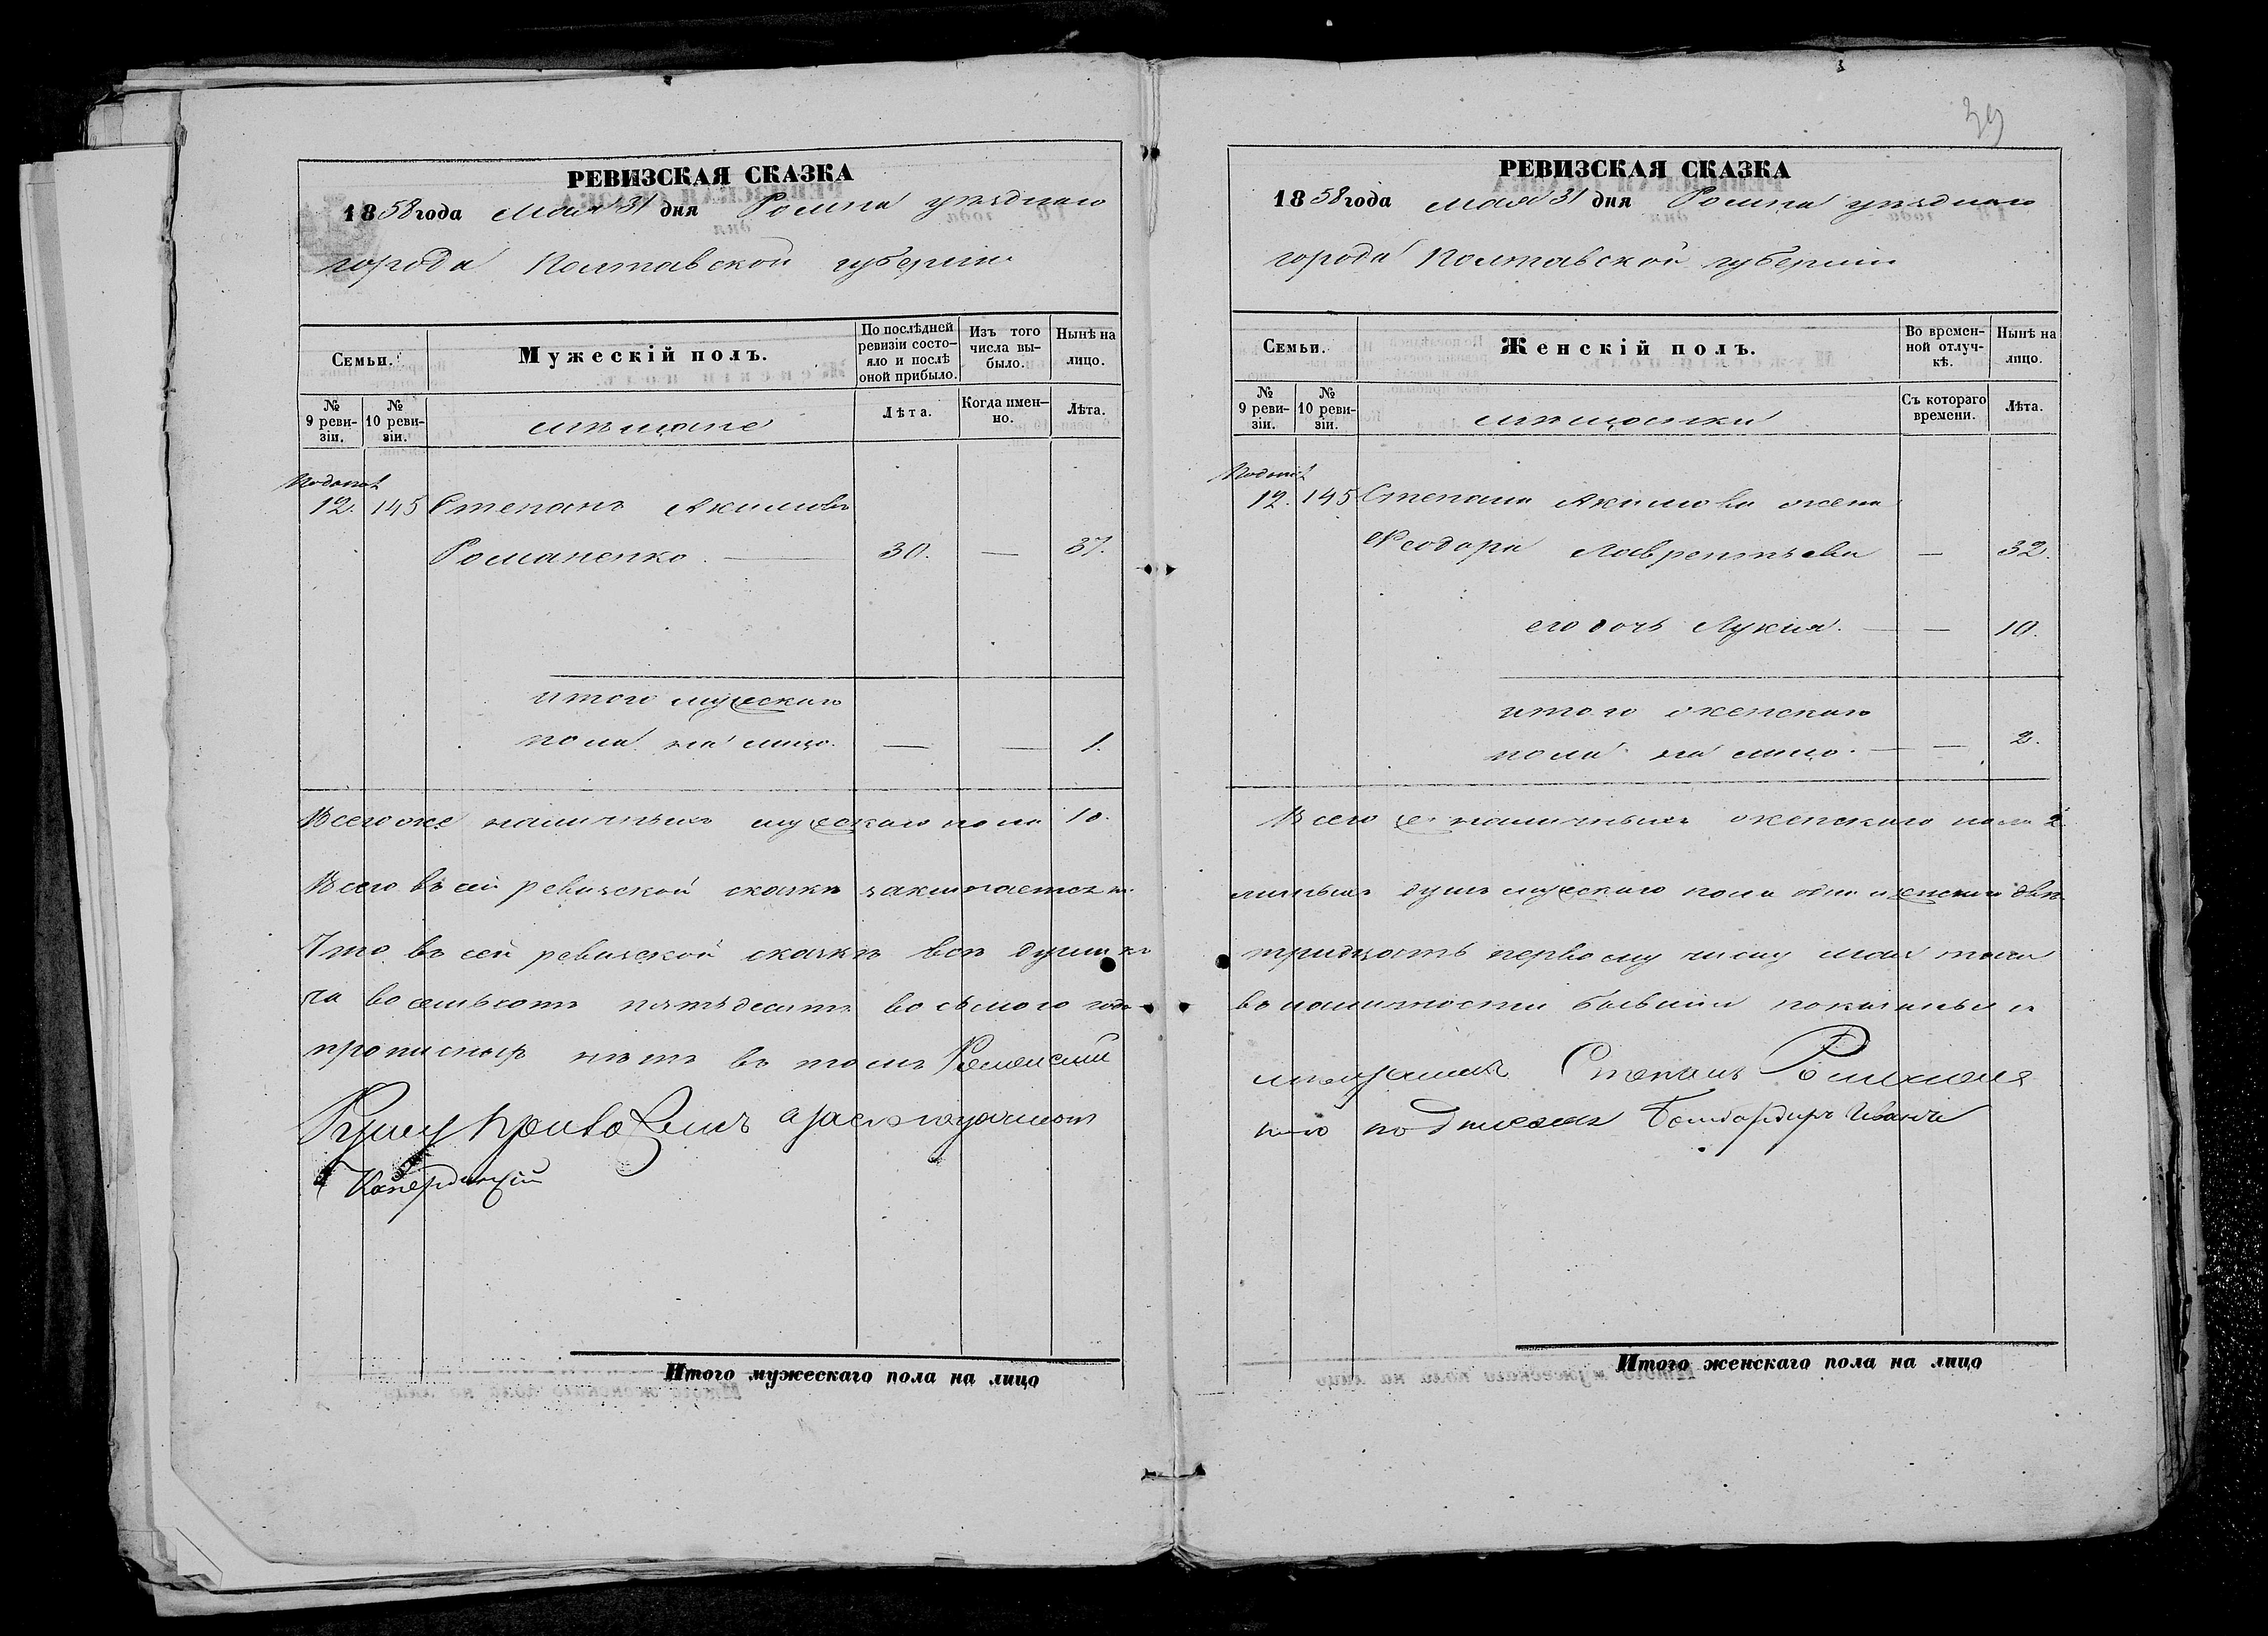 39
РЕВИЗСКАЯ СКАЗКА
1858 года Мая 31 дня Ромна уѣзднаго
города Полтавской губерніи
Семьи.
Мужескій полъ.
По послѣдней ревизіи состояло и послѣ оной прибыло.
Изъ того числа выбыло.
Нынѣ на лицо.
№ 9 ревизіи.
№ 10 ревизіи.
мѣщане
Лѣта.
Когда именно.
Лѣта.
12. 145 Степанъ Акимовъ
Романенко. — 30. — 37.
итого мужескаго
пола на лицо. — — 1.
Всего же наличныхъ мужескаго пола 1о.
Всего въ сей ревизской сказкѣ заключается
Что въ сей ревизской сказкѣ всѣ души
ча восемьсотъ пятьдесятъ восьмого года
прописныхъ нѣтъ въ томъ Роменскій
Итого мужескаго пола на лицо
РЕВИЗСКАЯ СКАЗКА
1858 года Мая 31 дня Ромна уѣзднаго
города Полтавской губерніи
Семьи.
Женскій полъ.
Во временной отлучкѣ.
Нынѣ на лицо.
№ 9 ревизіи.
№ 10 ревизіи.
мѣщанки
Съ котораго времени.
Лѣта.
12. 145 Степана Акимова жена
Феодора Лаврентьева — 32.
его дочь Лукия. — — 10.
итого женскаго
пола на лицо. — — 2.
Всего наличныхъ женскаго пола 2.
личныхъ душъ мужескаго пола женскаго двѣ
тридцать первому числу Мая тыся
въ наличности бывшія показаны и
мѣщанинъ Степанъ Романен
Бомбардиръ Иванъ
Итого женскаго пола на лицо